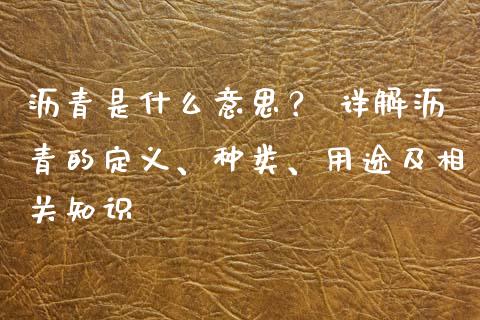 沥青是什么意思？ 详解沥
青的定义、种类、用途及相
关知识